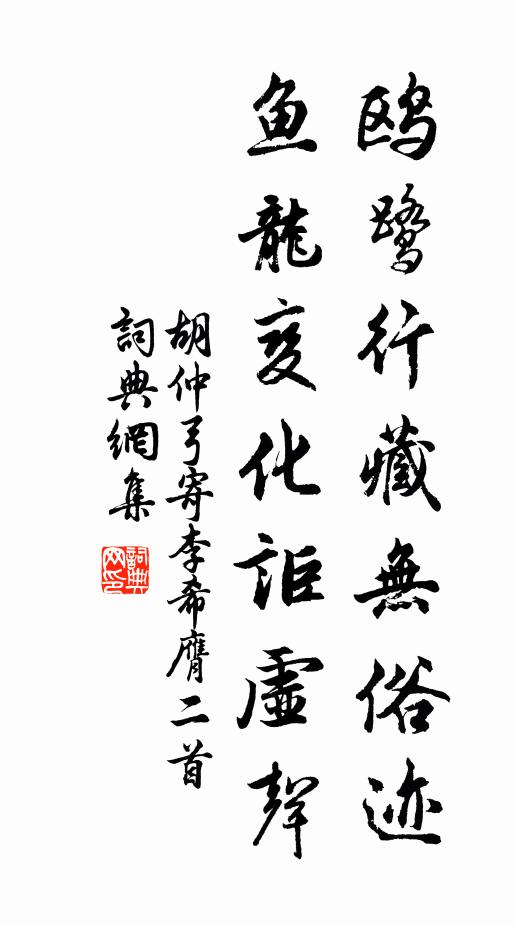 鸥鹭行藏無俗迹
鱼龍变化詎虛聲
胡仲弓寄李希膺二首
詞典網集
詞典网印